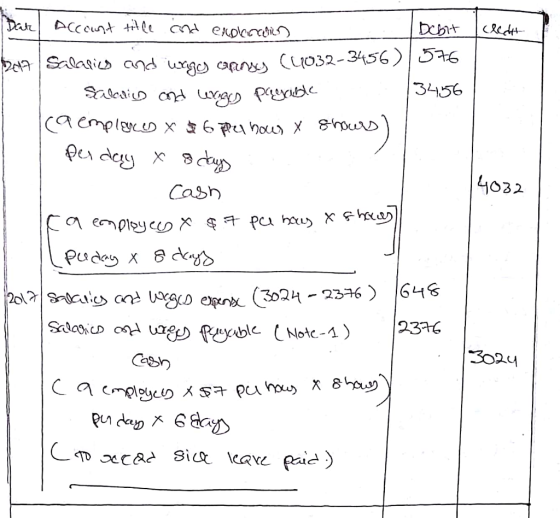 Date Account title and explanation Debit Credit
2017 Salaries and wages expenses (4032-3456) 576
Salaries and wages payable 3456
(9 employees x $6 per hours x 8 hours)
per day x 8 days
Cash 4032
[9 employees x $7 per hours x 8 hours]
per day x 8 days
2017 Salaries and wages expense (3024 - 2376) 648
Salaries and wages payable (Note-1) 2376
Cash 3024
(9 employees x $7 per hours x 8 hours)
per days x 6 days
(To record sick leave paid.)